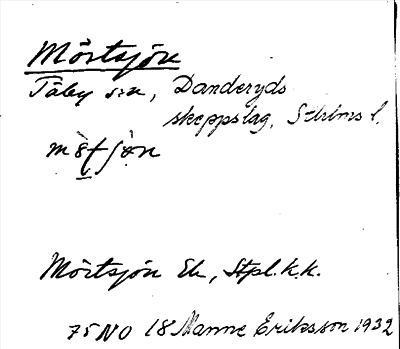 Mörtsjön
Täby sn, Danderyds
skeppslag, Sthlms l.
Mörtsjön Ek, Stpl.k.k.
75 NO 18 Manne Eriksson 1932